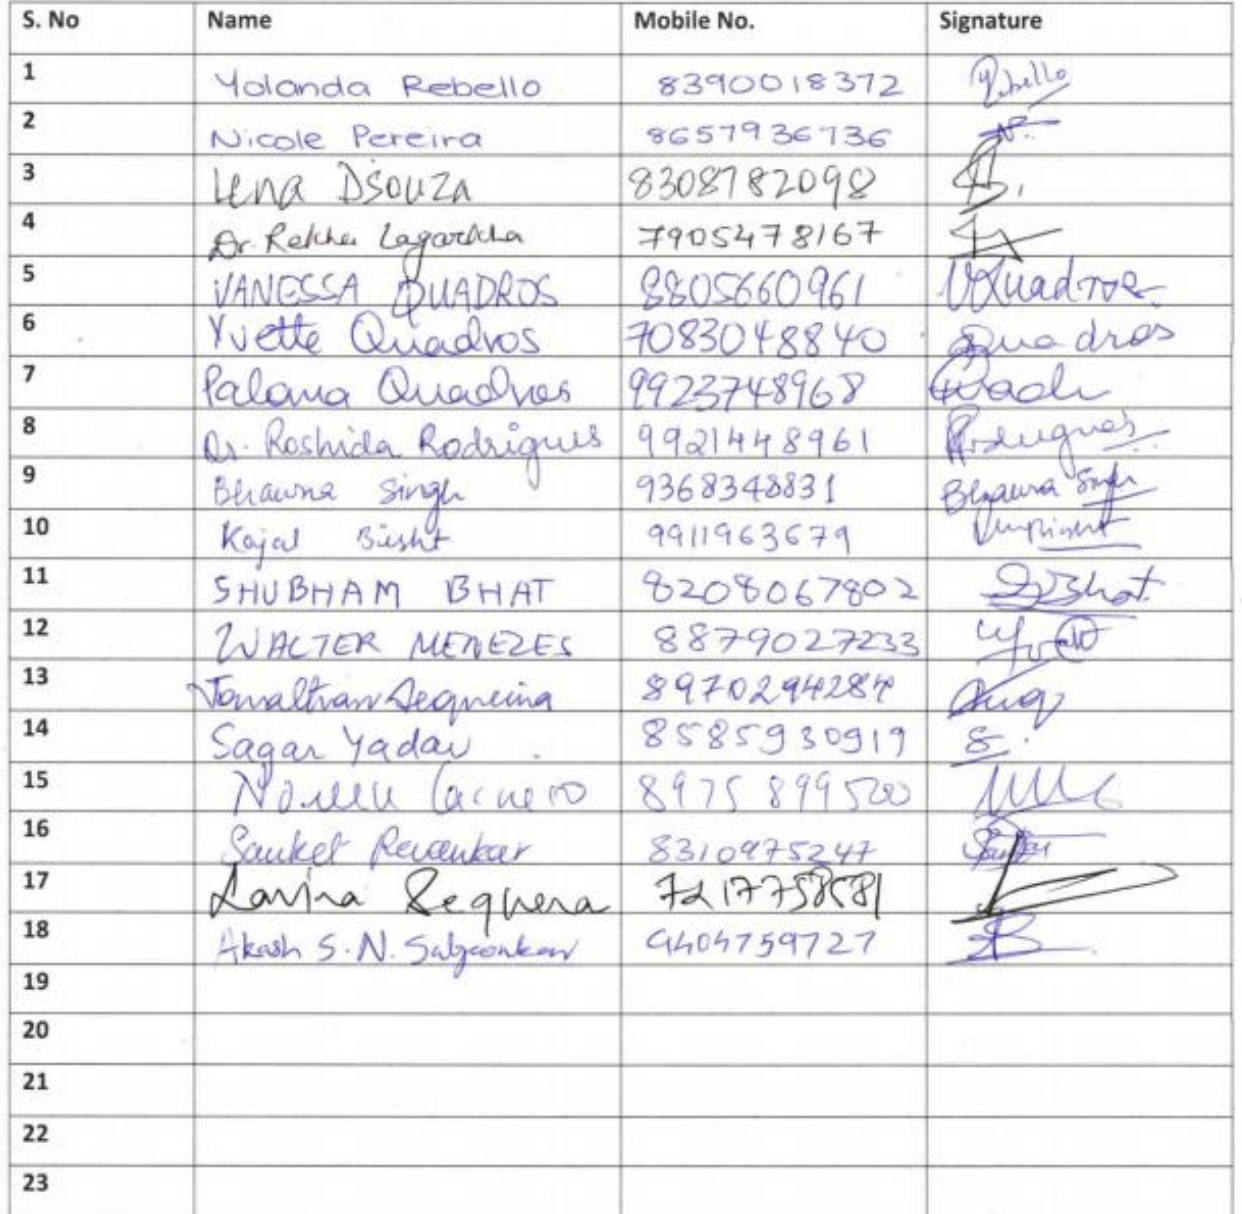 S. No Name Mobile No. Signature
1 Yolanda Rebello 8390018372 Rebello
2 Nicole Pereira 8657936736
3 Lena Dsouza 8308782098
4 Dr. Rekha Lagarkha 7905478167
5 VANESSA QUADROS 8805660961 VQuadros
6 Yvette Quadros 7083048840 Quadros
7 Quadros 9923748968
8 Dr. Roshida Rodrigues 9921448961 Rodrigues
9 Bhawna Singh 9368348831 Bhawna Singh
10 Kajal Bisht 9911963679
11 SHUBHAM BHAT 8208067802 SBhat
12 WALTER MENEZES 8879027233
13 Jonalthan Sequeira 8970294284
14 Sagar Yadav 8585930919 S.
15 Carneiro 8975 899500
16 Sanket Revankar 8310975247
17 Lavina Sequera 7217758581
18 Akash S. N. Salgaonkar 9404759727
19
20
21
22
23